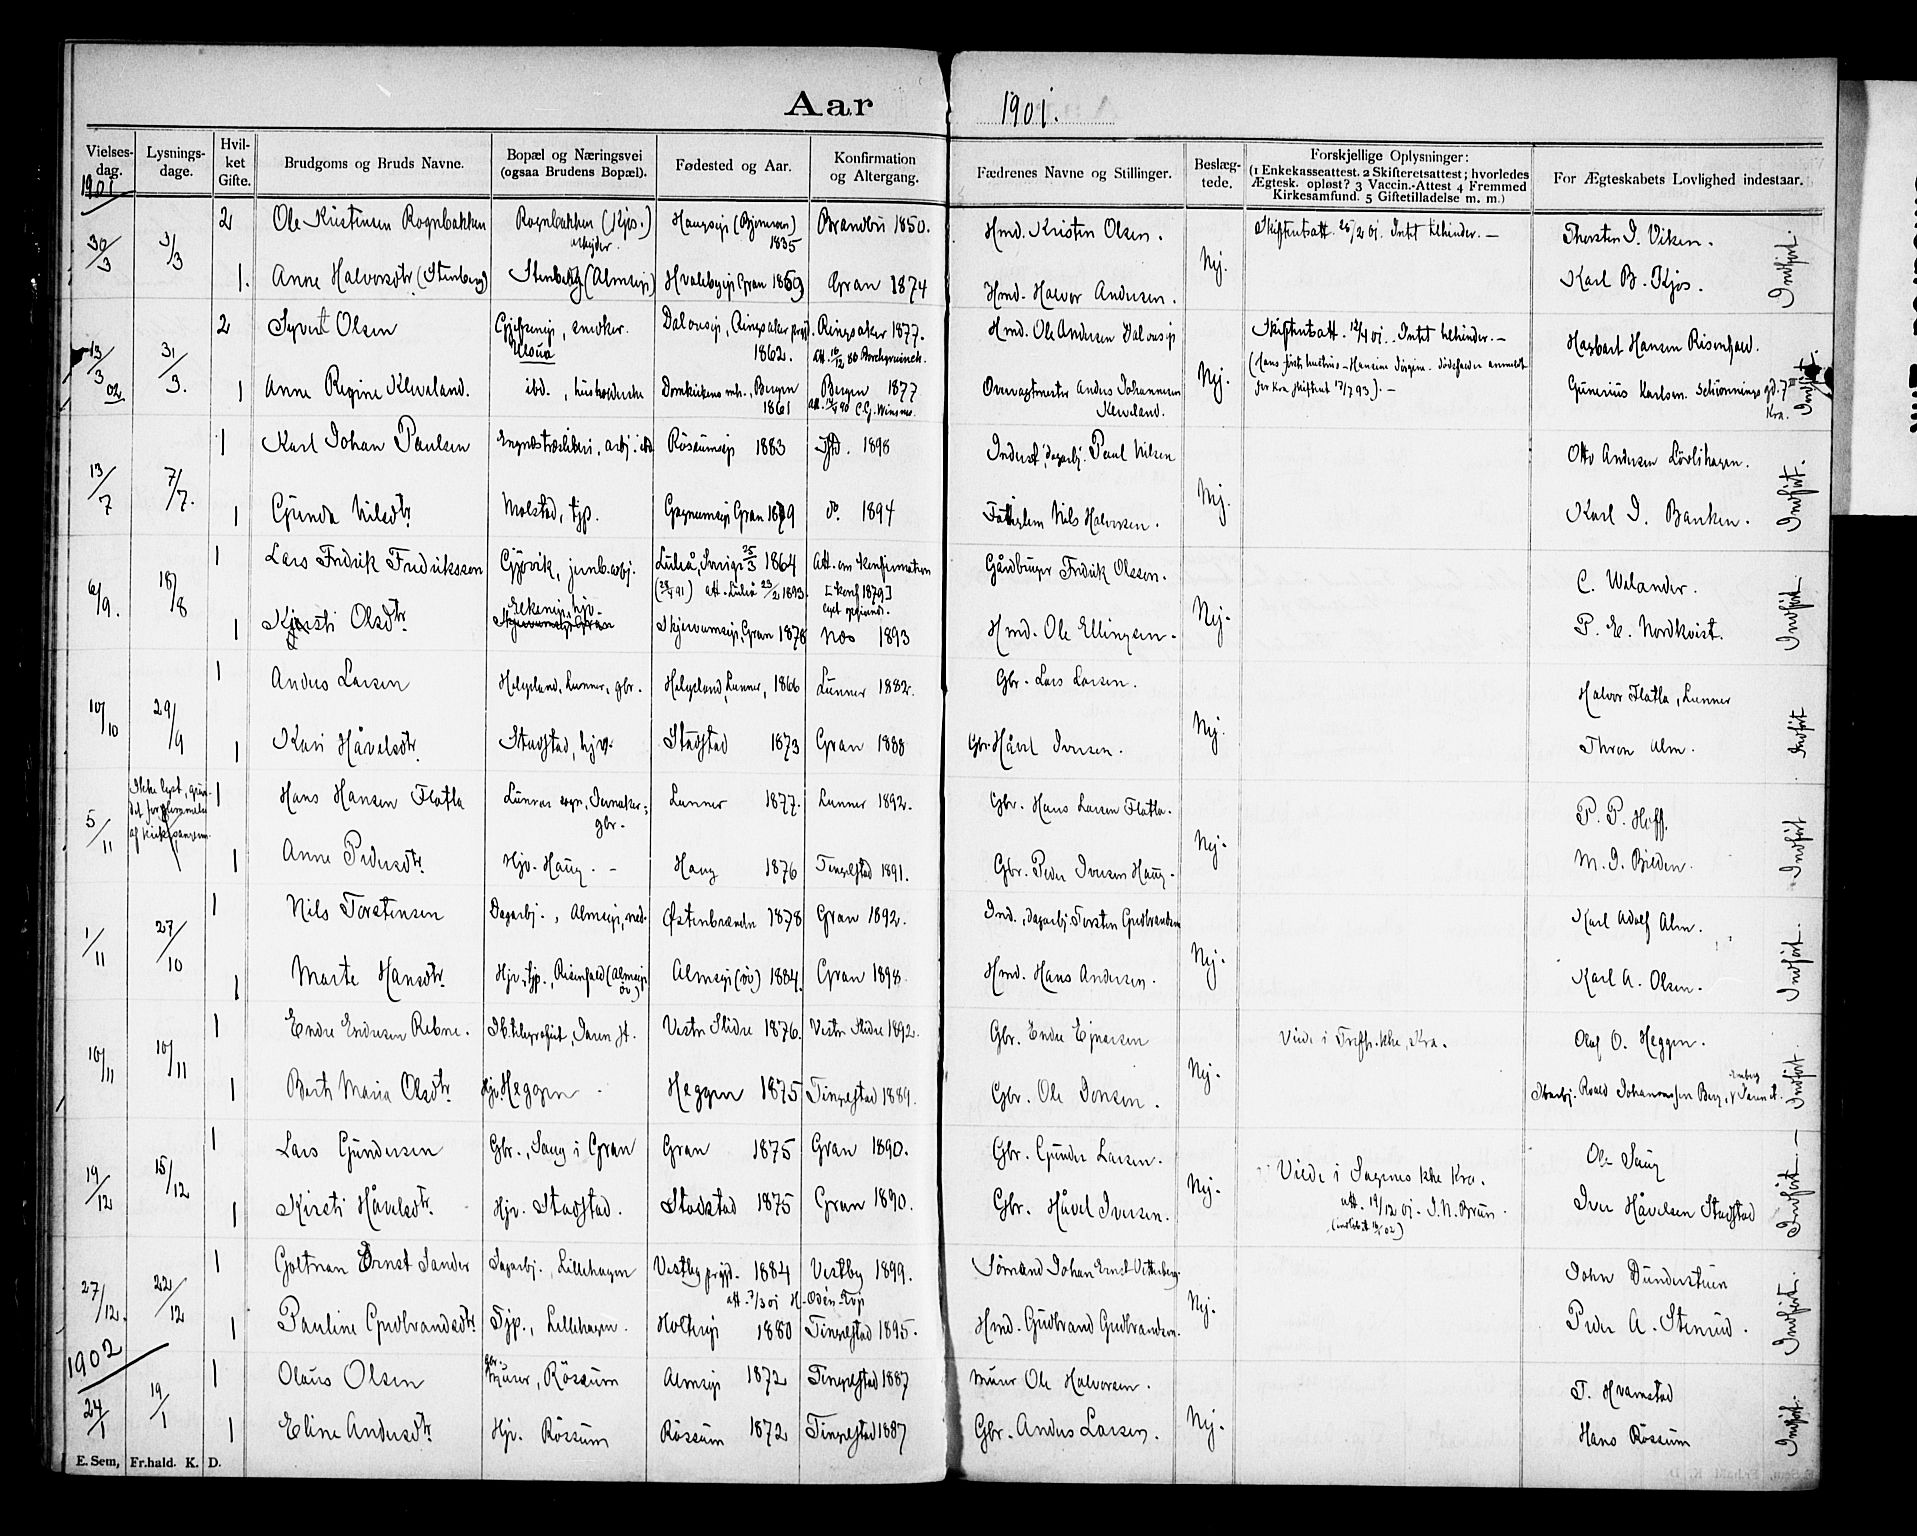 Aar 1901.
Vielses-dag. Lysnings-dage. Hvil-ket Gifte. Brudgoms og Bruds Navne. Bopæl og Næringsvei (ogsaa Brudens Bopæl). Fødested og Aar. Konfirmation og Altergang. Fædrenes Navne og Stillinger. Beslæg-tede. Forskjellige Oplysninger: (1 Enkekasseattest. 2 Skifteretsattest; hvorledes Ægtesk. opløst? 3 Vaccin.-Attest 4 Fremmed Kirkesamfund. 5 Giftetilladelse m. m.) For Ægteskabets Lovlighed indestaar.
1901
30/3 3/3 2 Ole Kristensen Rognbakken Rognbakken (Kjos.) arbeider. 1835 Brandbu 1850. Hmd. Kristen Olsen. Nej. Skifteretsatt. 28/2 01. Intet tilhinder. — Thorsten I. Viken.
1. Anne Halvorsdtr (Stenberg) Stenberg (Almseje) Hvalebyeje Gran 1859 Gran 1874 Hmd. Halvor Andersen. Karl B. Kjos. Indført.
13/3 02 31/3. 2 Syvert Olsen smøker. Dalouseje, Ringsaker prgjd. 1862. Ringsaker 1877. Hmd. Ole Andersen Dalouseje Nej. Skifteretsatt. 12/4 01. Intet tilhinder. — Hagbart Hansen Risenfald.
1 Anne Regine Kleveland. ibd., husholderske Domkirkens mh., Bergen 1861 Bergen 1877 Overvagtmester Anders Johannesen Kleveland. Gunerius Karlsen. Schönnings gd. 7 III Kra. Indført.
13/7 7/7. 1 Karl Johan Paulsen Røssumeje 1883 1898 Inderst, dagarbj. Paul Nilsen Nej. Otto Andersen Lövlihagen.
1 Gunda Nilsdtr Molstad, tjp. Grymumseje Gran 1879 do. 1894 Nils Halvorsen. Karl I. Banken. Indført.
6/9. 18/8 1 Lars Fredrik Fredriksson Gjøvik, jernb.arbj. Luleå, Sverige 25/3 1864 att. Luleå 23/2 1893. Att. om konfirmation [konf 1879] Gårdbruger Fredrik Olsson. Nej. C. Welander.
1 Kjersti Olsdtr. Skjervumseje, Gran 1878 Næs 1893 Hmd. Ole Ellingsen. P. E. Nordkvist. Indført
10/10 29/9 1 Anders Larsen Helgeland, Lunner, gbr. Helgeland, Lunner, 1866 Lunner 1882. Gbr. Lars Larsen. Nej. Halvor Flatla, Lunner
1 Kari Håvelsdtr. Stadstad, hjv. Stadstad 1873 Gran 1888 Gbr. Håvel Iversen. Thron Alm. Indført
5/11 Ikke lyst, grun-det forglemmelse af kirkesangeren. 1 Hans Hansen Flatla Lunner sogn, Jevnaker, gbr. Lunner 1877. Lunner 1892. Gbr. Hans Larsen Flatla. Nej. P. P. Hoff.
1 Anne Pedersdtr. Hjv. Haug. — Haug 1876 Tingelstad 1891. Gbr. Peder Iversen Haug. M. I. Bilden. Indført
1/11 27/10 1 Nils Torstensen Dagarbj., Almseje, ned. Østenbrænden 1878 Gran 1892. Ind., dagarbj. Torsten Gudbrandsen Nej. Karl Adolf Alm.
1 Marte Hansdtr. Hjv., tjp., Risenfald (Almseje öv.) Almseje (öv) 1884. Gran 1898. Hmd. Hans Andersen. Karl A. Olsen. Indført.
10/11 10/11 1 Endre Endresen Rebne. St. telegrafist, Jaren st. Vestre Slidre 1876. Vestre Slidre 1892. Gbr. Endre Ejnarsen Nej. Viede i Trefh. kke, Kra. Olaf O. Heggen.
1 Berth Maria Olsdtr. Hjv. Heggen Heggen 1875 Tingelstad 1889. Gbr. Ole Jonsen. Roald Johannessen Berg, Jaren st. Indført.
19/12 15/12 1 Lars Gundersen Gbr., Saug i Gran Gran 1875 Gran 1890. Gbr. Gunder Larsen. Nej. Viede i Sagenes kke Kra. att. 19/12 01. J. N. Brun. Ole Saug
1 Kirsti Håvelsdtr. Hjv. Stadstad. Stadstad 1875 Gran 1890. Gbr. Håvel Iversen. Iver Håvelsen Stadstad Indført —
27/12. 22/12 1 Goltman Ernst Sander Sagarbj., Lillehagen Vestby prgjd. 1884 Vestby 1899. Sømand Johan Ernst Vetterberg. Nej. John Dunderstuen
1 Pauline Gudbrandsdtr. Tjp., Lillehagen. 1880 Tingelstad 1895. Hmd. Gudbrand Gudbrandsen. Peder A. Stensrud. Indført.
1902
24/1 19/1 1 Olaus Olsen gbr. Murer, Røssum Almseje 1872 Tingelstad 1887 Murer Ole Halvorsen. Nej. T. Hvamstad
1 Eline Andersdtr. Hjv. Røssum Røssum 1872 Tingelstad 1887 Gbr. Anders Larsen. Hans Røssum Indført.
E. Sem, Fr.hald. K. D.